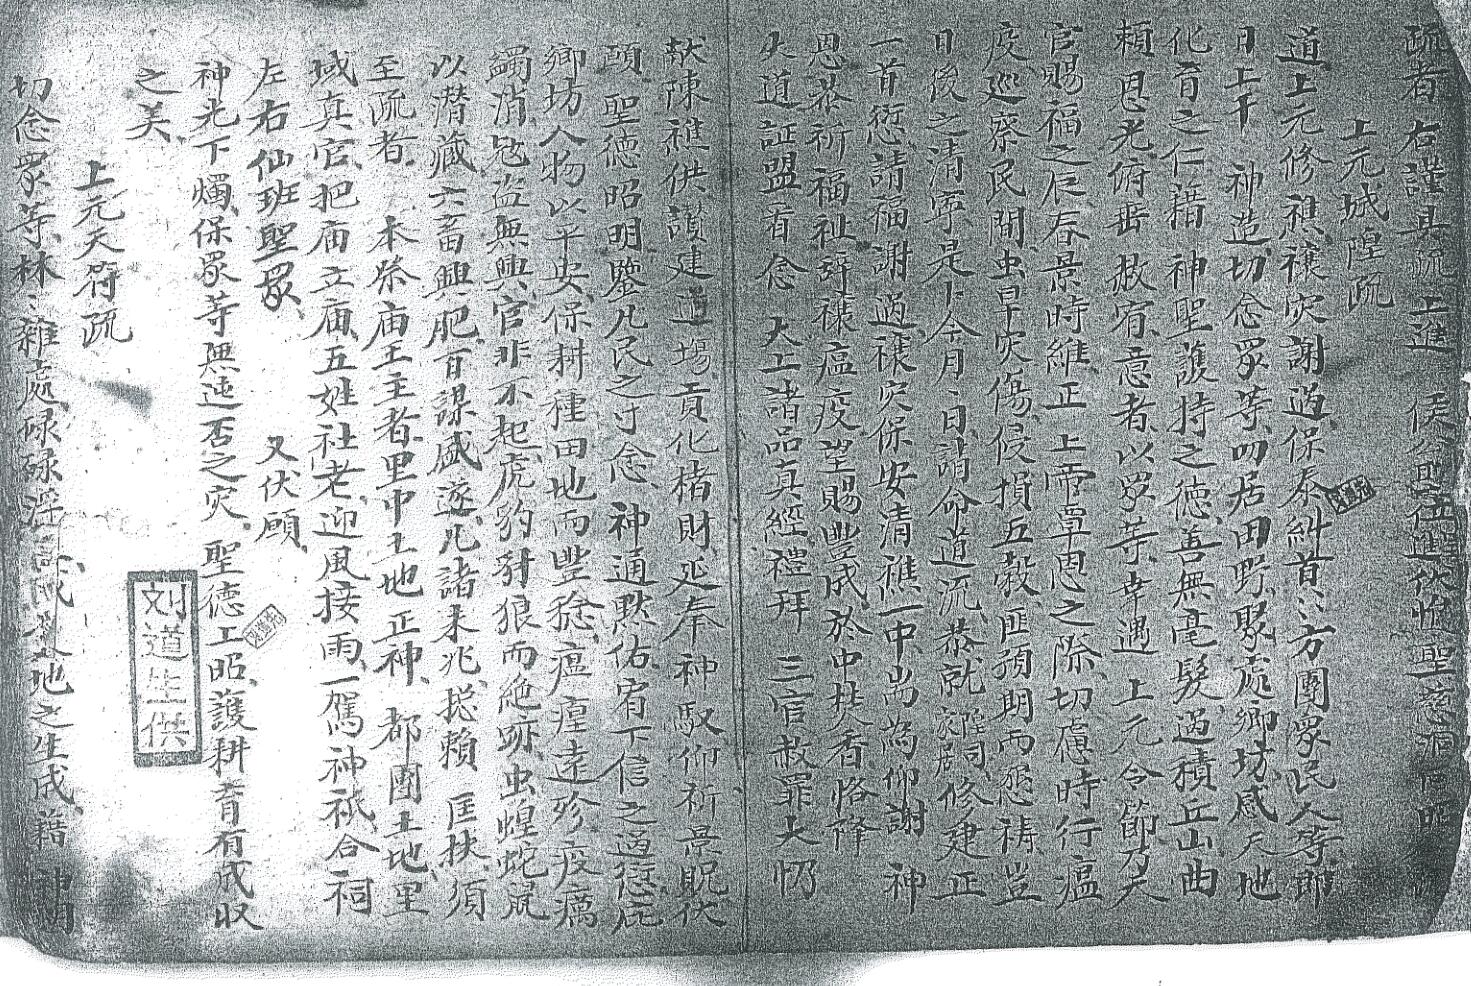 疏者 右謹具疏 上進
上元城隍疏
道上元修醮禳灾謝過保泰糾首〻方團眾民人等即
日上干 神造切念眾等叨居田野聚處鄉坊感天地
化育之仁藉 神聖護持之德善無毫髮過積丘山曲
賴恩光俯垂赦宥意者以眾等幸遇 上元令節乃天
官賜福之辰春景時維正 上霈覃恩之際切慮時行瘟
疫巡察民間虫旱灾傷侵損五穀匪預期而懇禱豈
日後之清寧是卜今月 日請命道流恭就 修建正
一首愆請福謝過禳灾保安清醮一中耑為仰謝 神
恩恭祈福祉辟禳瘟疫望賜豐成於中焚香恪降
大道証盟看念 太上諸品真經禮拜 三官赦罪大忏
献陳醮供讚建道場貢化楮財延奉 神馭仰祈景貺伏
願 聖德昭明鑒凡民之寸念 神通黙佑宥下信之過愆庇
鄉坊人物以平安保耕種田地而豐稔瘟瘴連殄疫癘
蠲消寇盗無興官非不起虎豹豺狼而絶跡虫蝗蛇鼠
以潜藏六畜興肥百謀盛遂凡諸未兆揔賴 匡扶須
至疏者 本祭庙王主者里中土地正神 都團土地里
域真官把庙立庙五姓社老迎風接雨一駕神祇合祠
左右仙班聖眾 又伏願
神光下燭保眾等無迍否之灾 聖德上昭護耕育有成收
之美
上元天符疏
刘道生供
切念眾等林〻雜處碌碌浮 地之生成藉 神明